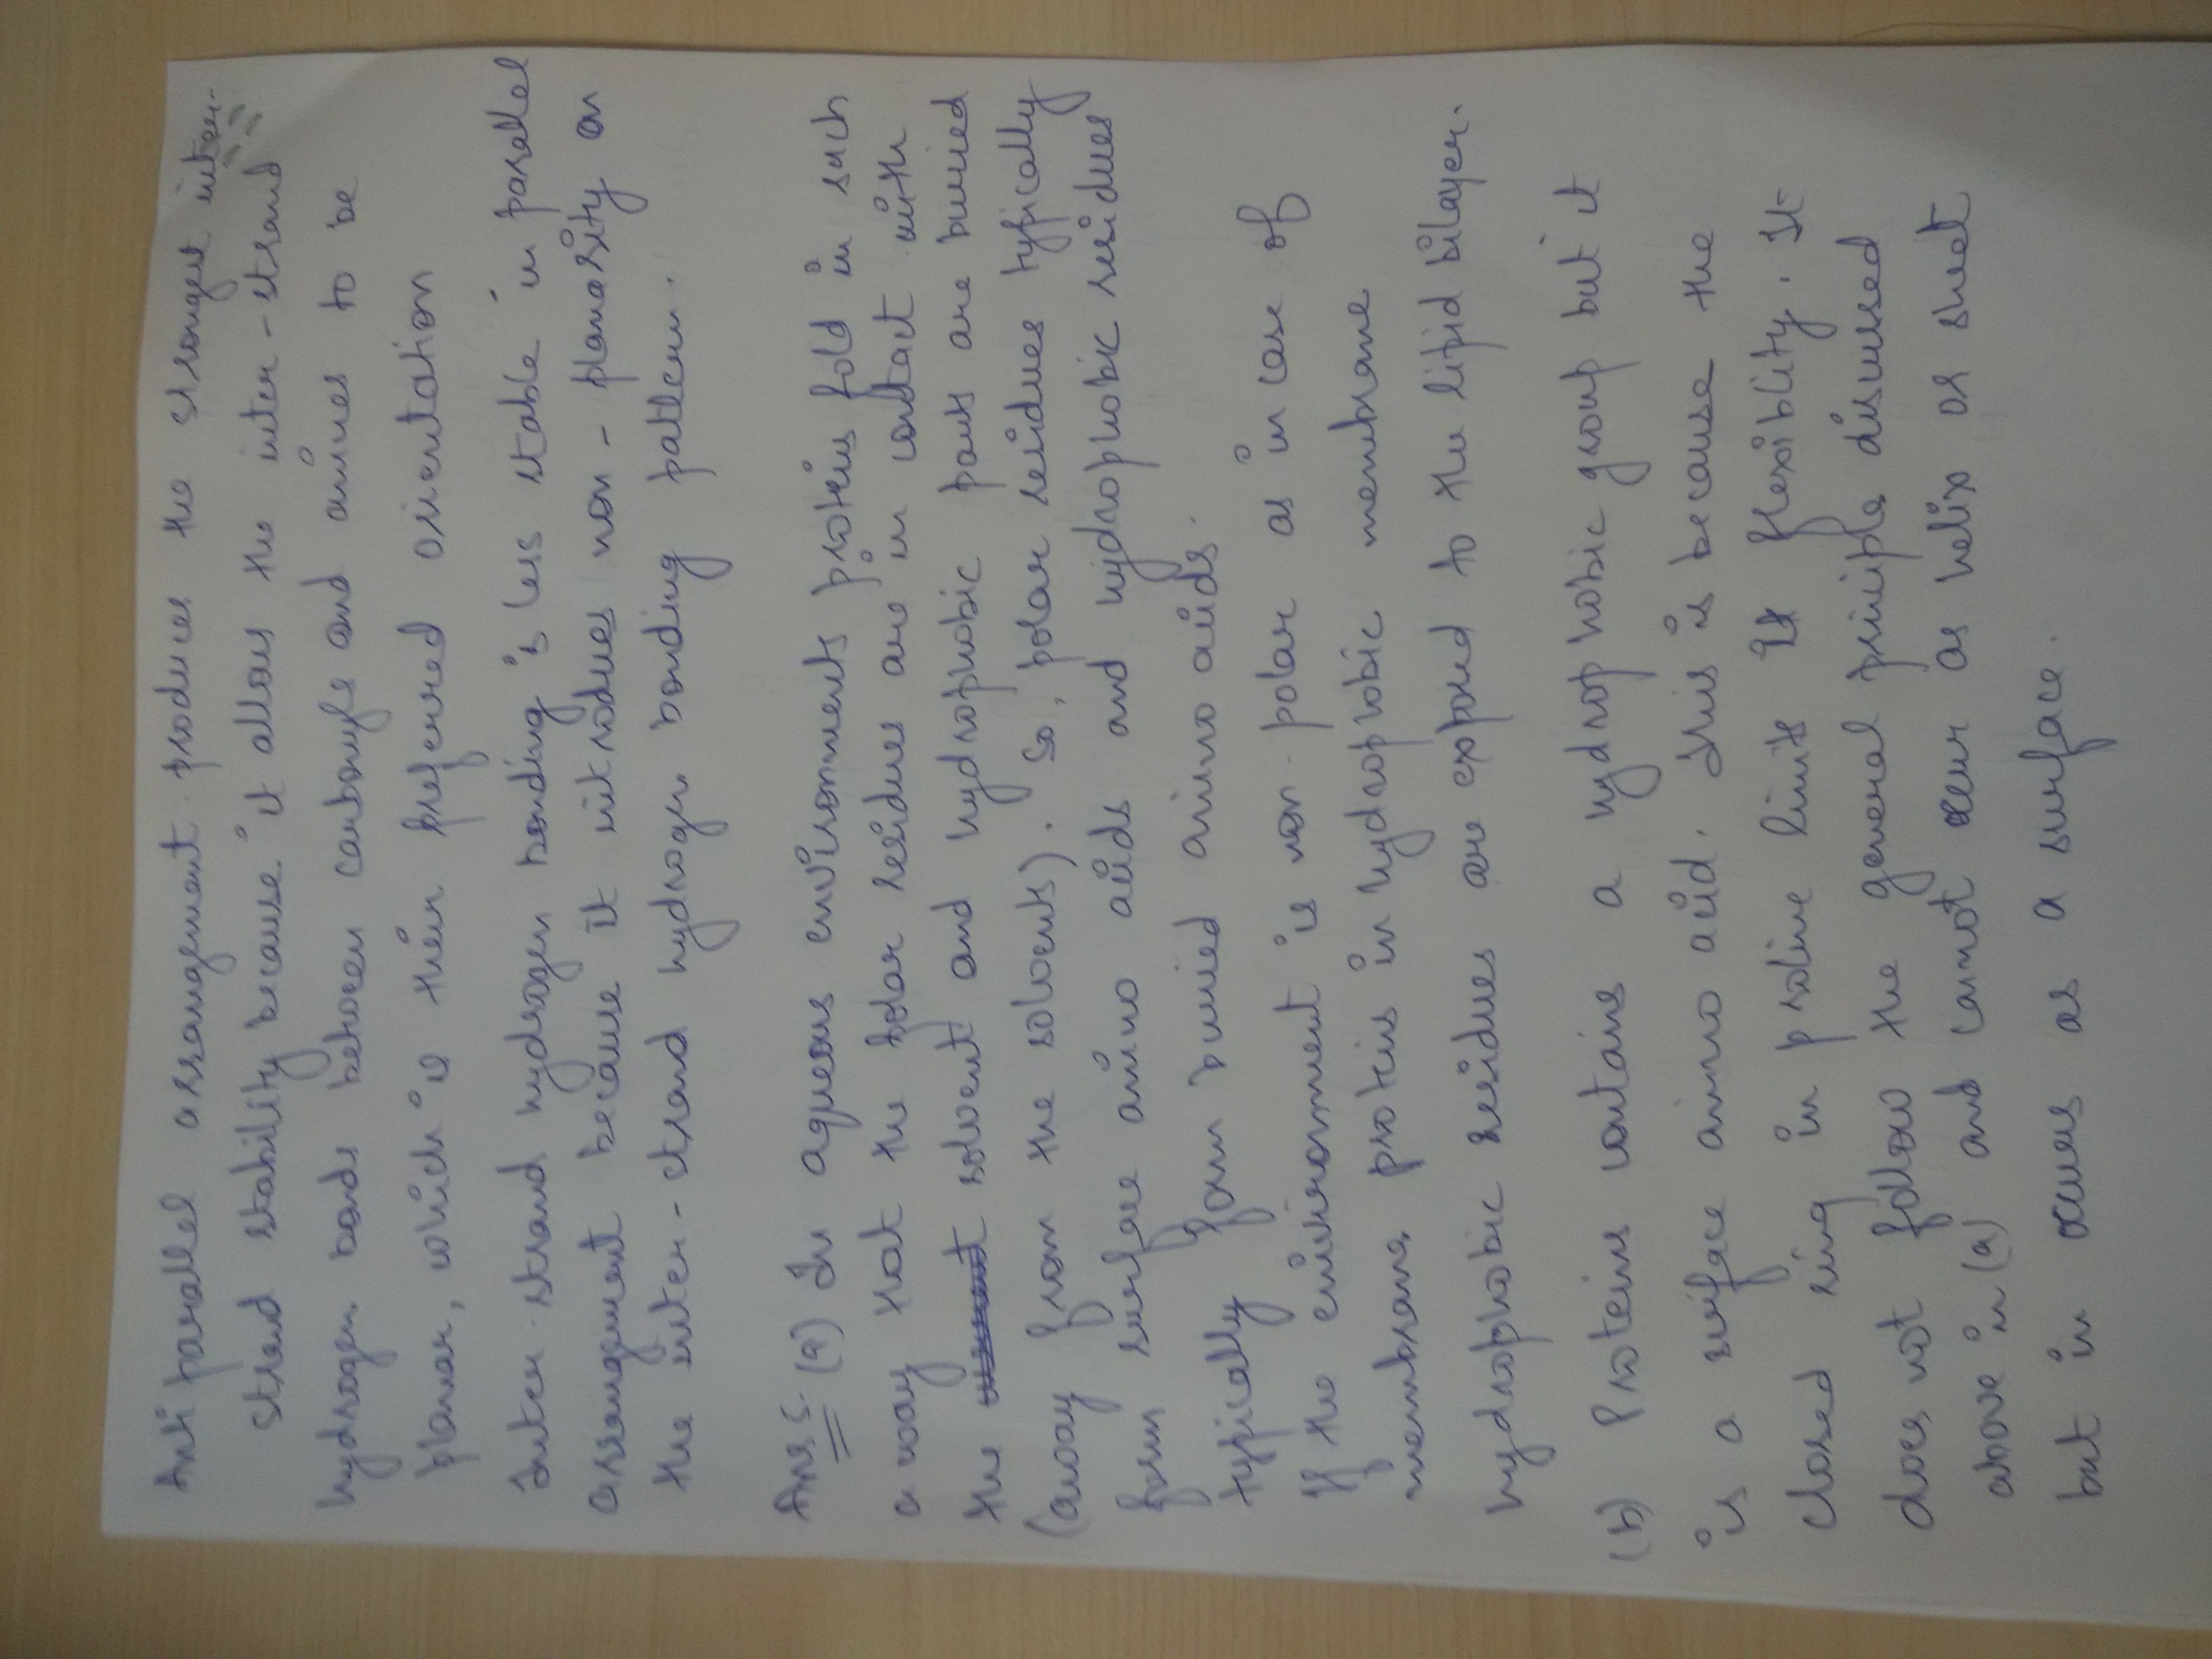 Anti parallel arrangement produces the strongest inter-
strand stability because it allows the inter-strand
hydrogen bonds between carbonyls and amines to be
planar, which is their preferred orientation
Inter-strand hydrogen bonding is less stable in parallel
arrangement because it introdues non-planarity on
the inter-strand hydrogen bonding pattern.
Ans 5. (a) In aqueous environments proteins fold in such
a way that the polar residues are in contact with
the solvent and hydrophobic parts are buried
(away from the solvents). So, polar residues typically
form surface amino acids and hydrophobic residues
typically form buried amino acids.
If the environment is non-polar as in case of
membrane proteins in hydrophobic membrane
hydrophobic residues are exposed to the lipid bilayer.
(b) Proteins contains a hydrophobic group but it
is a surface amino acid. This is because the
closed ring in proline limits its flexiblity. It
does not follow the general principle discussed
above in (a) and cannot occur as helix or sheet
but in occurs as a surface.